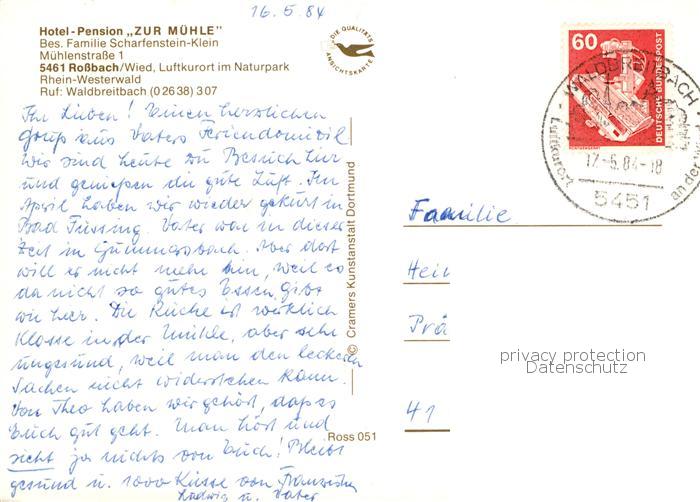 16.5.84
Hotel-Pension „ZUR MÜHLE"
Bes. Familie Scharfenstein-Klein
Mühlenstraße 1
5461 Roßbach/Wied, Luftkurort im Naturpark
Rhein-Westerwald
Ruf: Waldbreitbach (0 26 38) 3 07
DIE QUALITÄTS
ANSICHTSKARTE
Ihr Lieben! Einen herzlichen
Gruß aus Vaters Feriendomizil
Wir sind heute zu Besuch hier
und genießen die gute Luft. Im
April haben wir wieder gekurt in
Bad Füssing. Vater war in dieser
Zeit in Gummersbach. Aber dort
will er nicht mehr hin, weil es
da nicht so gutes Essen gibt
wie hier. Die Küche ist wirklich
Klasse in der Mühle, aber sehr
ungesund, weil man den leckeren
Sachen nicht widerstehen kann.
Von Theo haben wir gehört, daß es
Euch gut geht. Man hört und
sieht ja nichts von Euch! Bleibt
gesund u. 1000 Küsse von Franziska
Ludwig u. Vater
© Cramers Kunstanstalt Dortmund
Ross 051
60
DEUTSCHE BUNDESPOST
WALDBREITBACH
Luftkurort
17.-5.84-18
an der
5451
Familie
Hei
Prä
41
privacy protection
Datenschutz